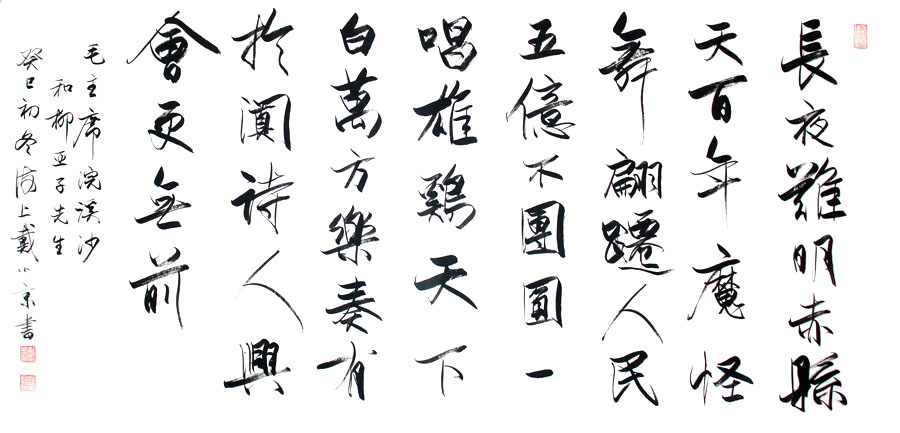 長夜難明赤縣
天百年魔怪
舞翩躚人民
五億不團圓一
唱雄鷄天下
白萬方樂奏有
於闐詩人興
會更無前
毛主席浣溪沙
和柳亚子先生
癸巳初冬海上戴小京書